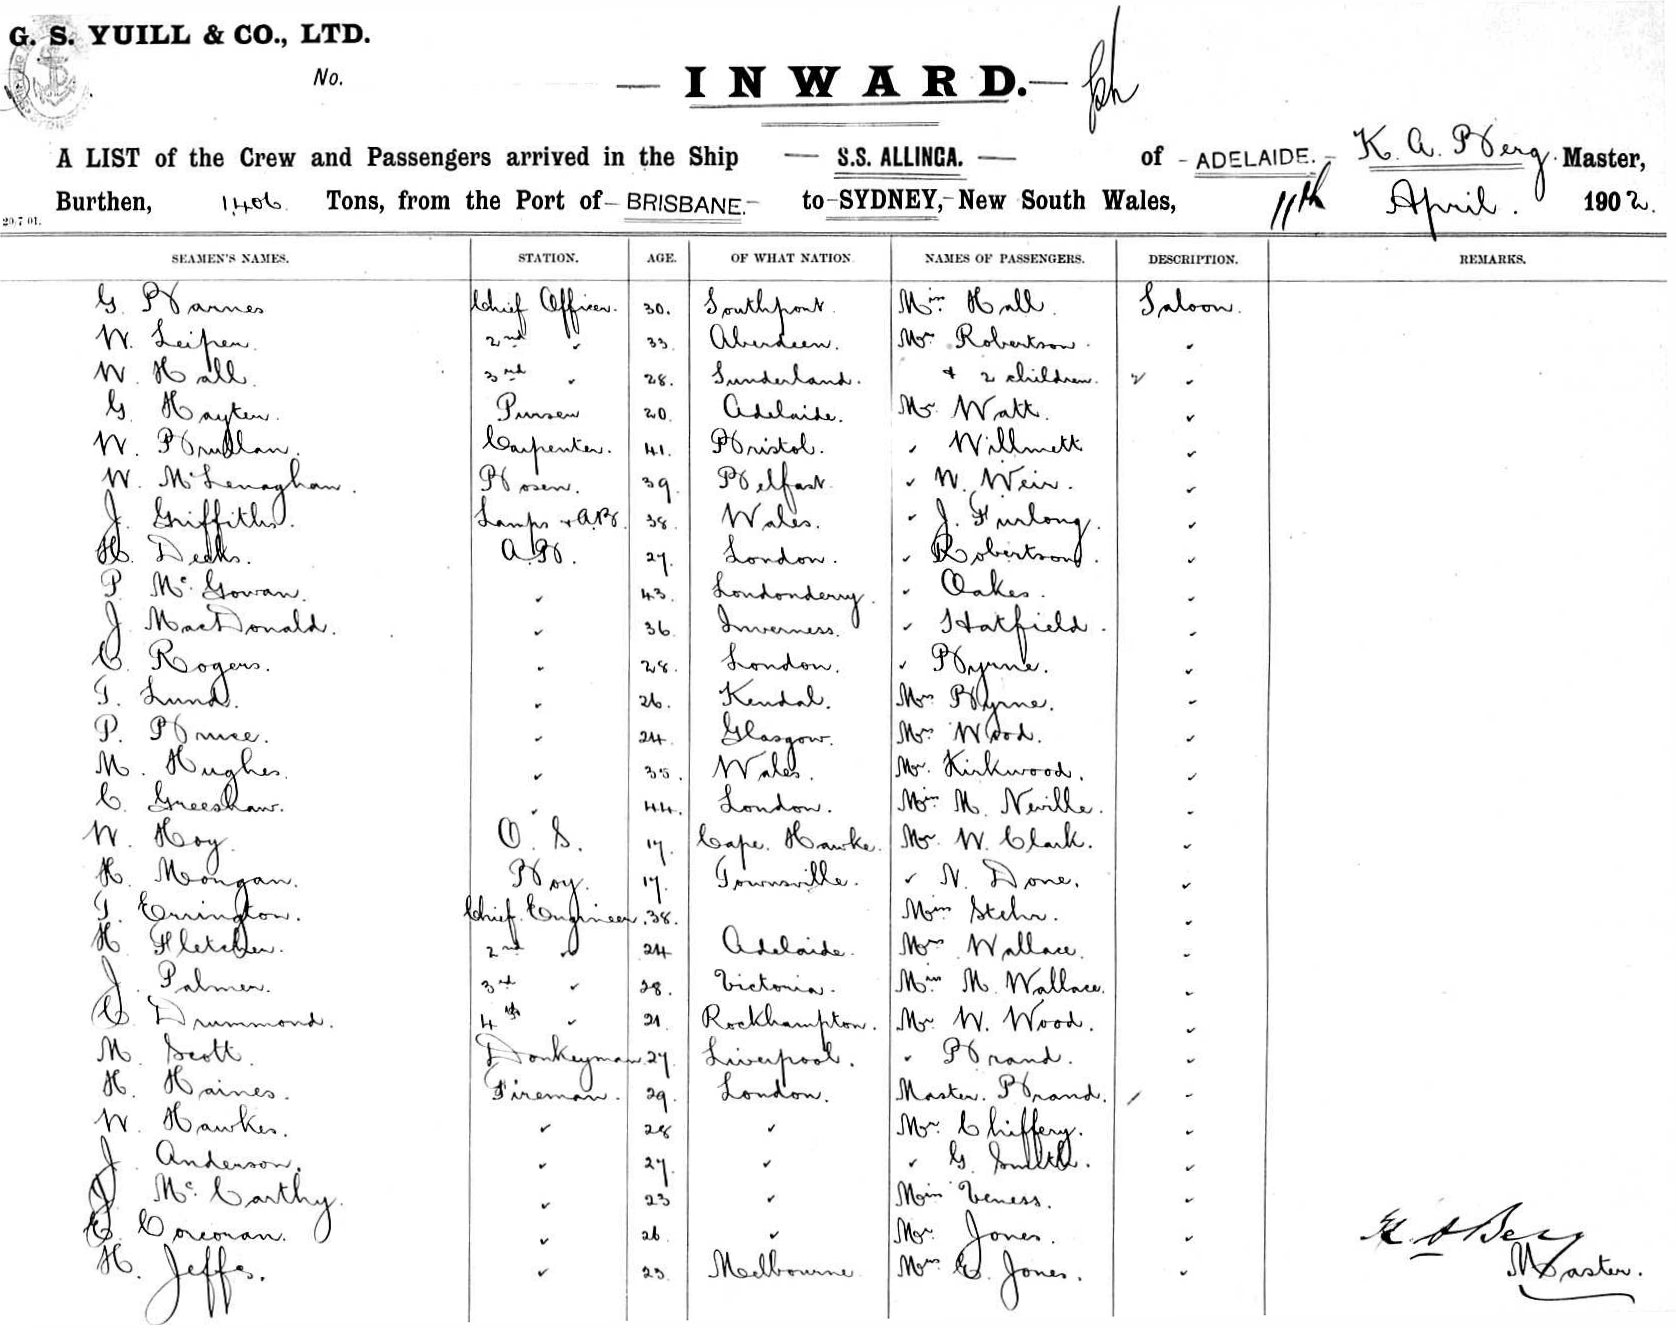 G. S. YUILL & CO., LTD.
No.
— INWARD. —
A LIST of the Crew and Passengers arrived in the Ship — S.S. ALLINGA. — of - ADELAIDE. - K. A. Berg. Master,
Burthen, 1406 Tons, from the Port of - BRISBANE. - to - SYDNEY, - New South Wales, 11th April. 1902.
20.7.01.
SEAMEN'S NAMES. STATION. AGE. OF WHAT NATION NAMES OF PASSENGERS. DESCRIPTION. REMARKS.
G. Barnes Chief Officer. 30. Southport. Miss Hall. Saloon.
W. Leiper. 2nd " 33. Aberdeen. Mrs Robertson. "
W. Hall. 3rd " 28. Sunderland. + 2 children. 2 "
G. Hayter. Purser 20. Adelaide. Mr. Watt. "
W. Carpenter. 41. Bristol. " Willmett "
W. McLenaghan. Bosen. 39. Belfast. " W. Weir. "
J. Griffiths. Lamps + A.B. 38. Wales. " J. Furlong. "
H. Deeks. A.B. 27. London. " Robertson. "
P. Mc. Gowan. " 43. Londonderry. " Oakes. "
J. MacDonald. " 36. Inverness. " Hatfield. "
C. Rogers. " 28. London. " Byrne. "
T. Lund. " 26. Kendal. Mrs Byrne. "
P. Bruce. " 24. Glasgow. Mrs Wood. "
M. Hughes. " 35. Wales. Mr. Kirkwood. "
C. Greeshaw. " 44. London. Miss M. Neville. "
W. Hoy. O. S. 17. Cape. Hawke. Mr. W. Clark. "
H. Mongan. Boy. 17. Townsville. " N. Done. "
T. Errington. Chief Engineer. 38. Miss Stehr. "
H. Fletcher. 2nd " 24 Adelaide. Mrs Wallace. "
J. Palmer. 3rd " 28. Victoria. Miss M. Wallace. "
C. Drummond. 4th " 21. Rockhampton. Mr. W. Wood. "
M. Scott. Donkeyman 27. Liverpool. " Brand. "
H. Haines. Fireman. 29. London. Master. Brand. / "
W. Hawkes. " 28 " Mr. Chiffery. "
J. Anderson. " 27. " " G. Smith. "
J. Mc. Carthy. " 23 " Miss Veness. "
E. Corcoran. " 26 " Mr. Jones. "
H. Jeffs. " 23. Melbourne Mrs E. Jones. "
K. A Berg
Master.